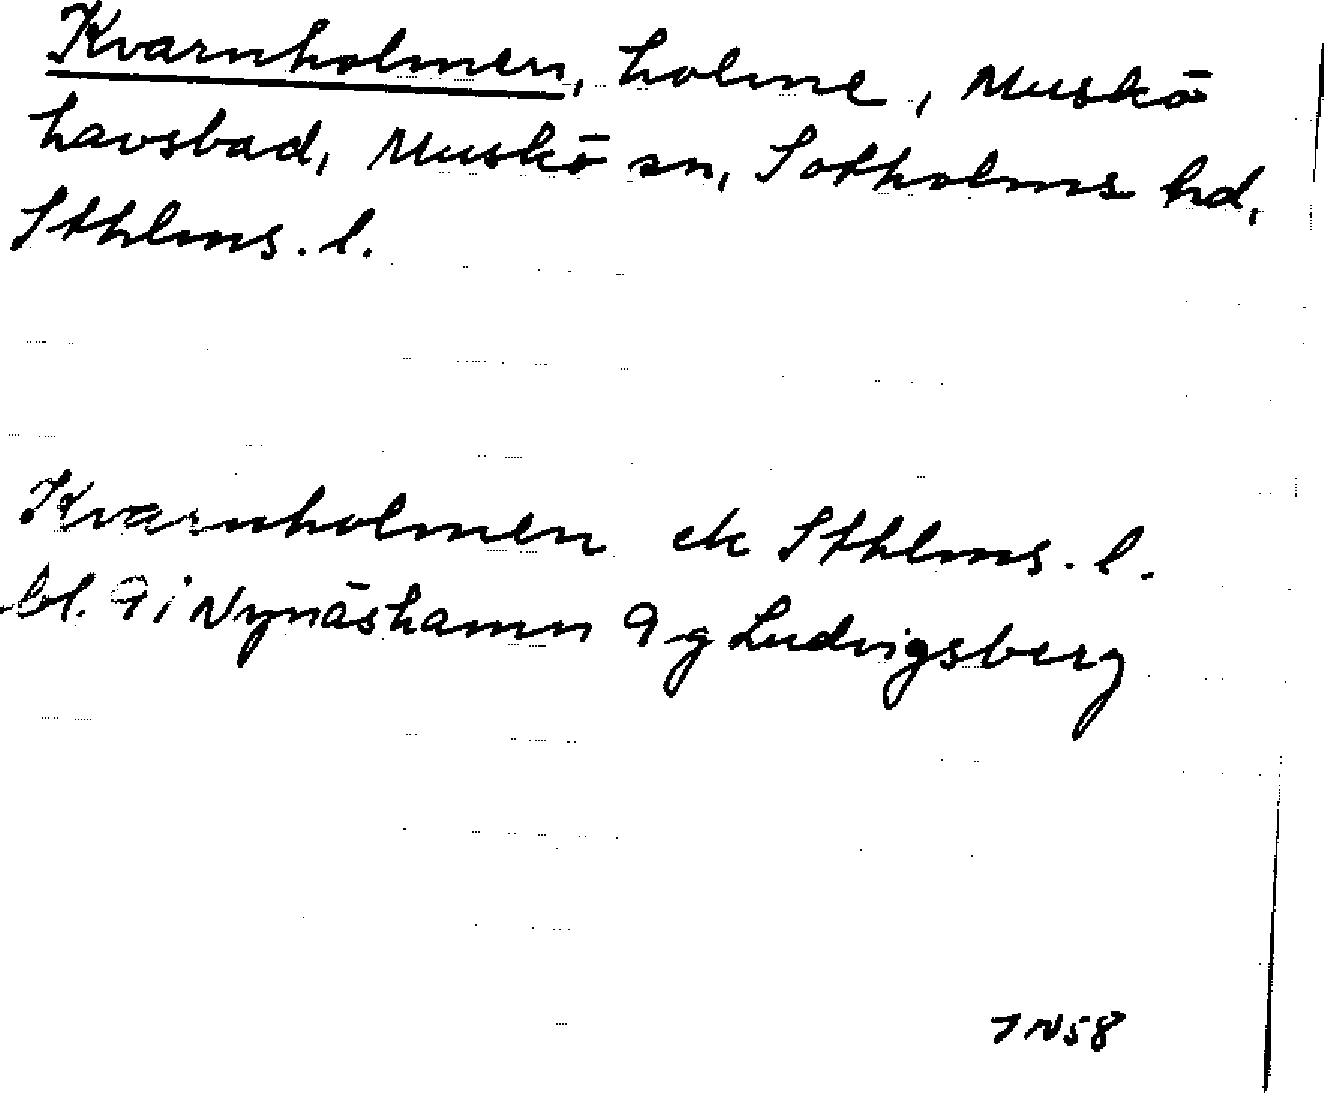 Kvarnholmen, holme, Muskö
havsbad, Muskö sn, Sotholms hd,
Sthlms. l.
Kvarnholmen ek Sthlms. l.
bl. 9 i Nynäshamn 9 g Ludvigsberg
7 N58